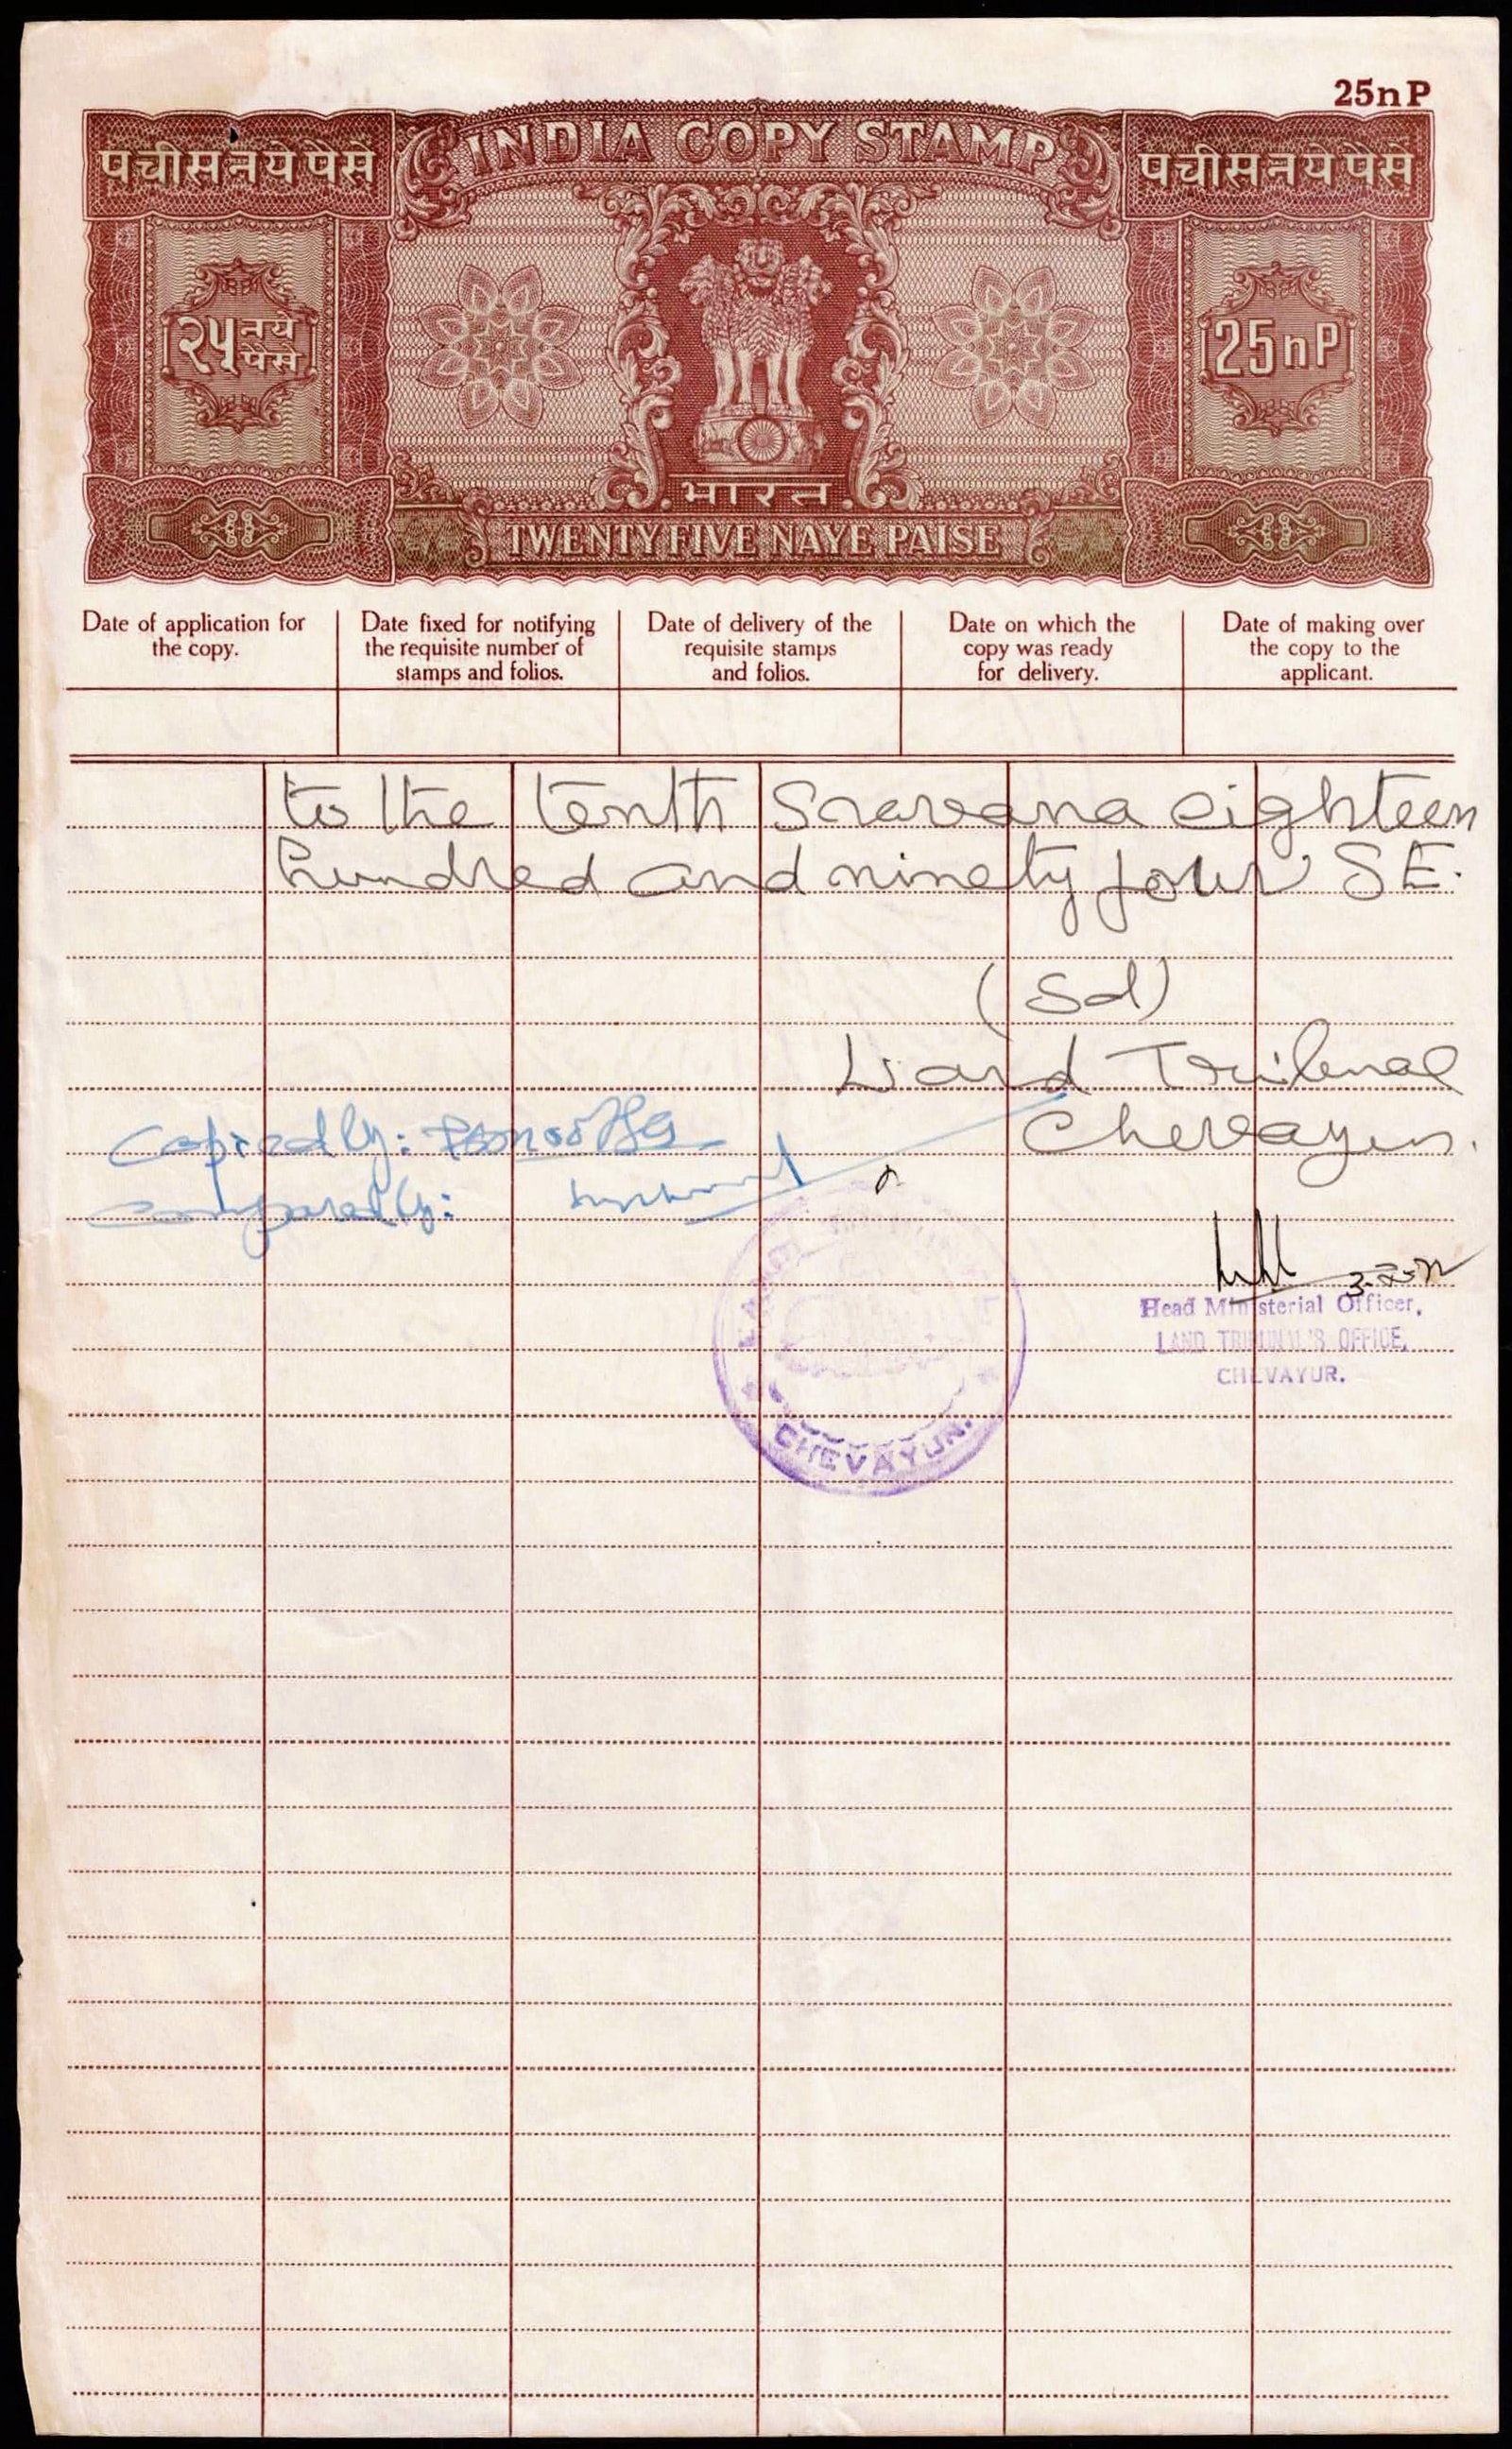 25nP
पचीस नये पैसे
INDIA COPY STAMP
पचीस नये पैसे
२५ नये पैसे
25nP
भारत
TWENTY FIVE NAYE PAISE
Date of application for the copy.
Date fixed for notifying the requisite number of stamps and folios.
Date of delivery of the requisite stamps and folios.
Date on which the copy was ready for delivery.
Date of making over the copy to the applicant.
to the tenth Sravana eighteen
hundred and ninety four SE.
(Sd)
Land Tribunal
Chevayur.
Copied by:
Compared by:
Head Ministerial Officer,
LAND TRIBUNAL'S OFFICE,
CHEVAYUR.
LAND TRIBUNAL
CHEVAYUR.